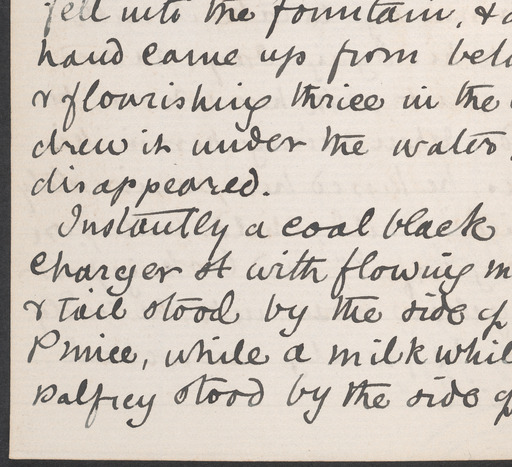 fell into the fountain, &
hand came up from bel
& flourishing thrice in the
drew it under the water,
disappeared.
Instantly a coal black
charger st with flowing m
& tail stood by the side of
Prince, while a milk whit
palfrey stood by the side of